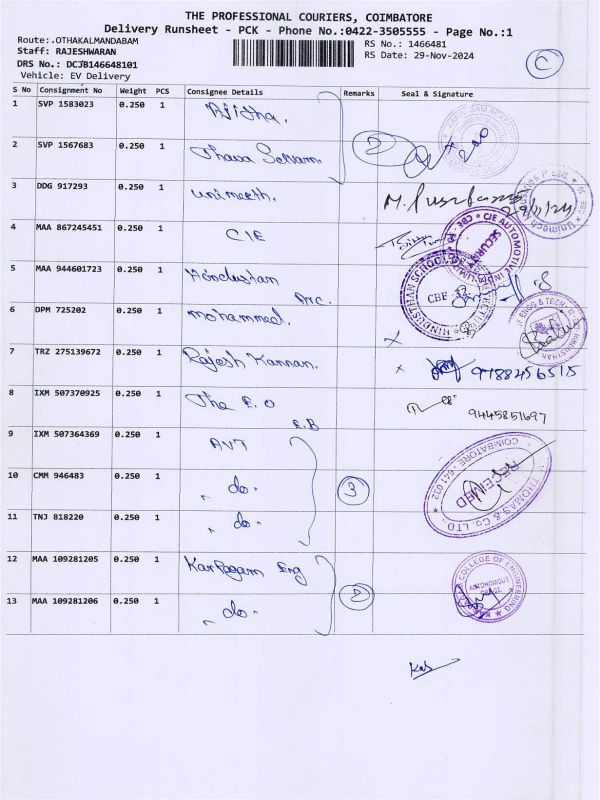 THE PROFESSIONAL COURIERS, COIMBATORE
Delivery Runsheet - PCK - Phone No.:0422-3505555 - Page No.:1
Route:.OTHAKALMANDABAM
Staff: RAJESHWARAN
DRS No.: DCJB146648101
Vehicle: EV Delivery
RS No.: 1466481
RS Date: 29-Nov-2024
C
S No Consignment No Weight PCS Consignee Details Remarks Seal & Signature
1 SVP 1583023 0.250 1 Ajitha.
2 SVP 1567683 0.250 1 Thava Selvam. 2
3 DDG 917293 0.250 1 unimeeth. 29/11/24
4 MAA 867245451 0.250 1 CIE
CIE AUTOMOTIVE
SECURITY
5 MAA 944601723 0.250 1 Hindustan
Arc.
HINDUSTHAN SCHOOL
CBE 32
6 DPM 725202 0.250 1 mohammed.
ENGG & TECH
HINDUSTHAN
7 TRZ 275139672 0.250 1 Rajesh Kannan. 9788456515
8 IXM 507370925 0.250 1 The E.O
E.B
9445851697
9 IXM 507364369 0.250 1 AVT
10 CMM 946483 0.250 1 " do - 3
THOMAS & Co. LTD
COIMBATORE - 641 032
RECEIVED
11 TNJ 818220 0.250 1 " do -
12 MAA 109281205 0.250 1 Karpagam Eng
COLLEGE OF ENGINEERING
13 MAA 109281206 0.250 1 " do - 2